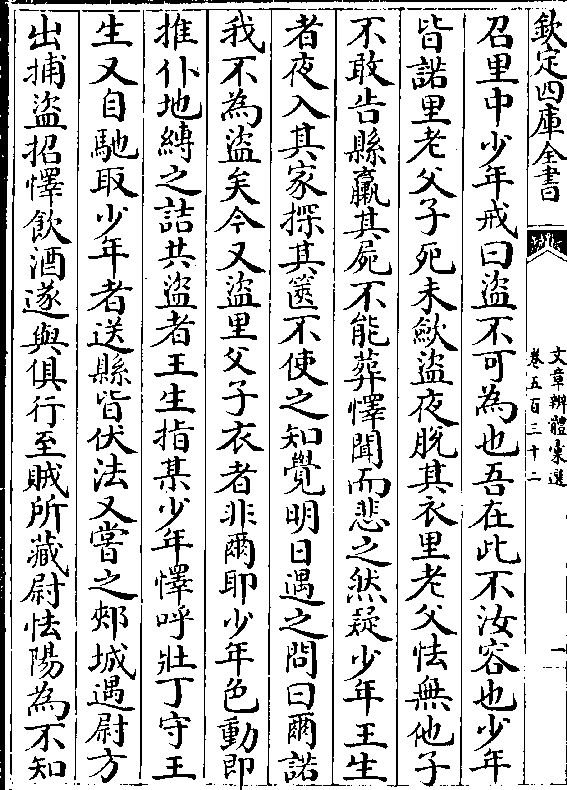 欽定四庫全書
文章辨體彙選
卷五百三十二
一
召里中少年戒曰盜不可為也吾在此不汝容也少年
皆諾里老父子死未歛盜夜脫其衣里老父怯無他子
不敢告縣臝其屍不能葬懌聞而悲之然疑少年王生
者夜入其家探其篋不使之知覺明日遇之問曰爾諾
我不為盜矣今又盜里父子衣者非爾耶少年色動即
推仆地縛之詰共盜者王生指某少年懌呼壯丁守王
生又自馳取少年者送縣皆伏法又嘗之郟城遇尉方
出捕盜招懌飲酒遂與俱行至賊所藏尉怯陽為不知